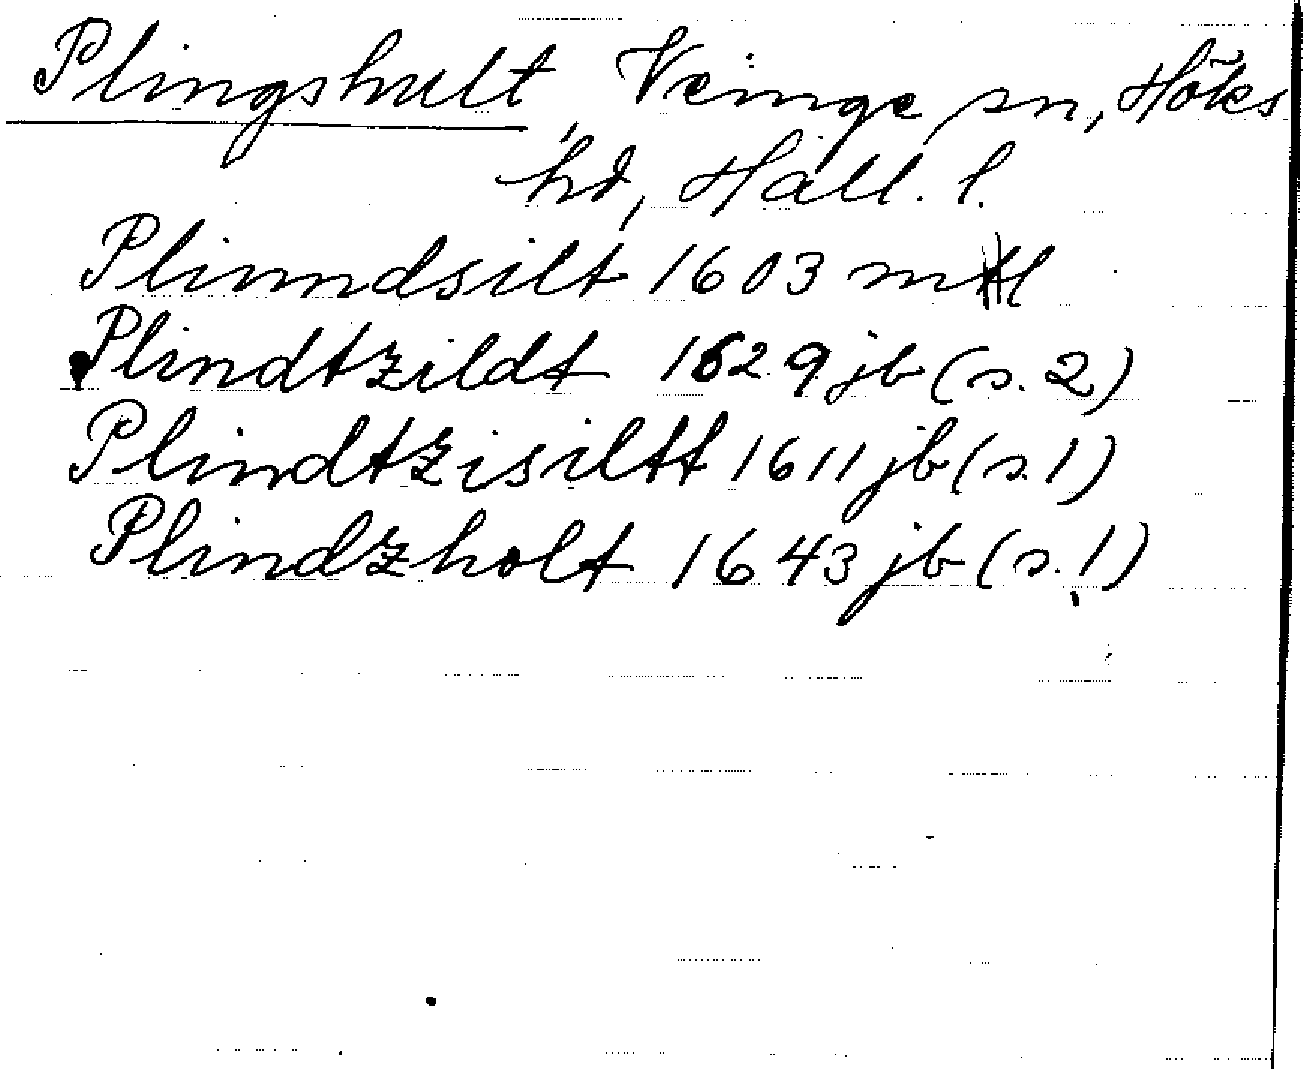 Plingshult, Veinge sn, Höks
hd, Hall. l.
Plinndsilt 1603 mtl
Plindtzildt 1629 jb (s. 2)
Plindtzisiltt 1611 jb (s. 1)
Plindzholt 1643 jb (s. 1)